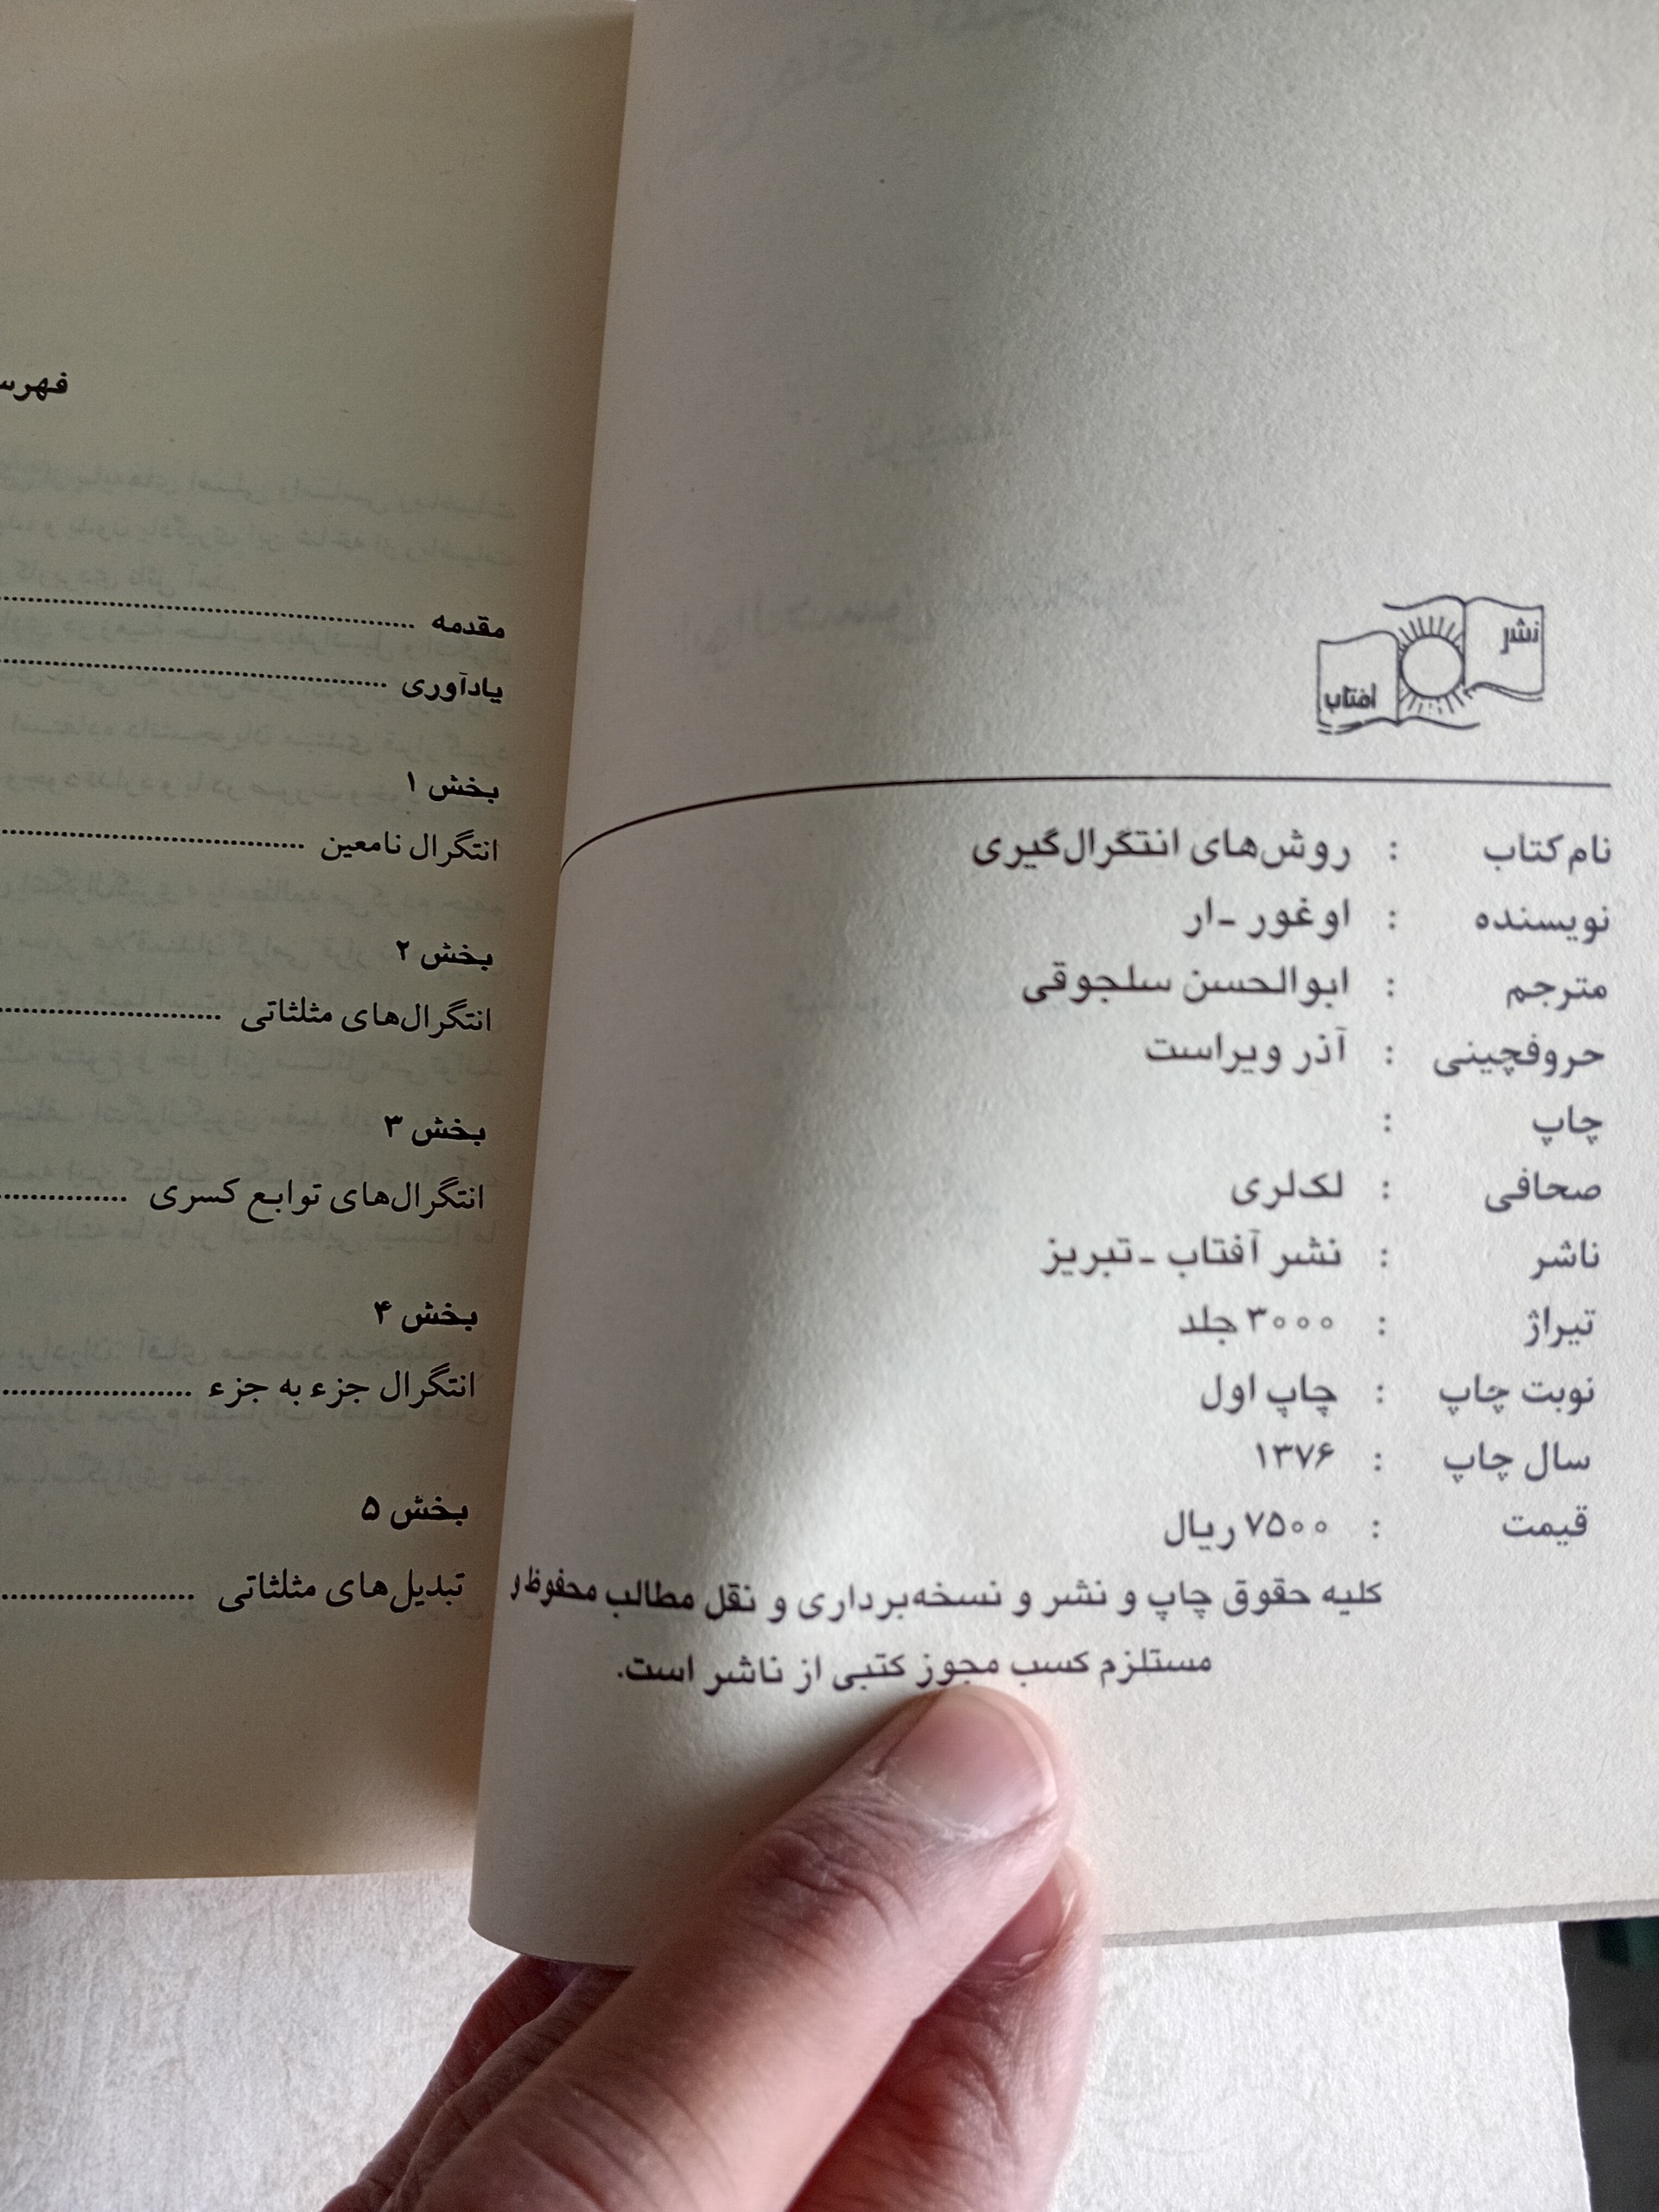 نشر
آفتاب
نام کتاب : روش‌های انتگرال‌گیری
نویسنده : اوغور ـ ار
مترجم : ابوالحسن سلجوقی
حروفچینی : آذر ویراست
چاپ :
صحافی : لک‌لری
ناشر : نشر آفتاب ـ تبریز
تیراژ : ۳۰۰۰ جلد
نوبت چاپ : چاپ اول
سال چاپ : ۱۳۷۶
قیمت : ۷۵۰۰ ریال
کلیه حقوق چاپ و نشر و نسخه‌برداری و نقل مطالب محفوظ و
مستلزم کسب مجوز کتبی از ناشر است.
فهرس
مقدمه
یادآوری
بخش ۱
انتگرال نامعین
بخش ۲
انتگرال‌های مثلثاتی
بخش ۳
انتگرال‌های توابع کسری
بخش ۴
انتگرال جزء به جزء
بخش ۵
تبدیل‌های مثلثاتی